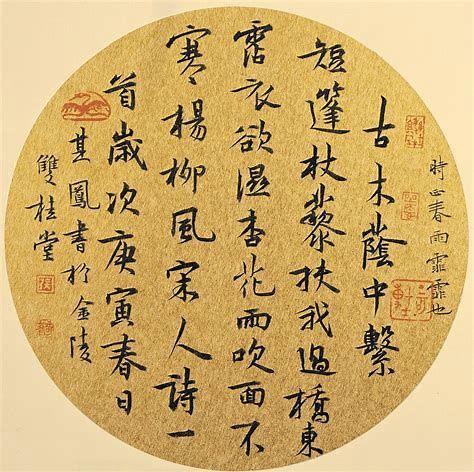 時正春雨霏霏也
古木蔭中繫
短篷杖藜扶我過橋東
霑衣欲濕杏花雨吹面不
寒楊柳風宋人詩一
首歲次庚寅春日
鳳書於金陵
雙桂堂